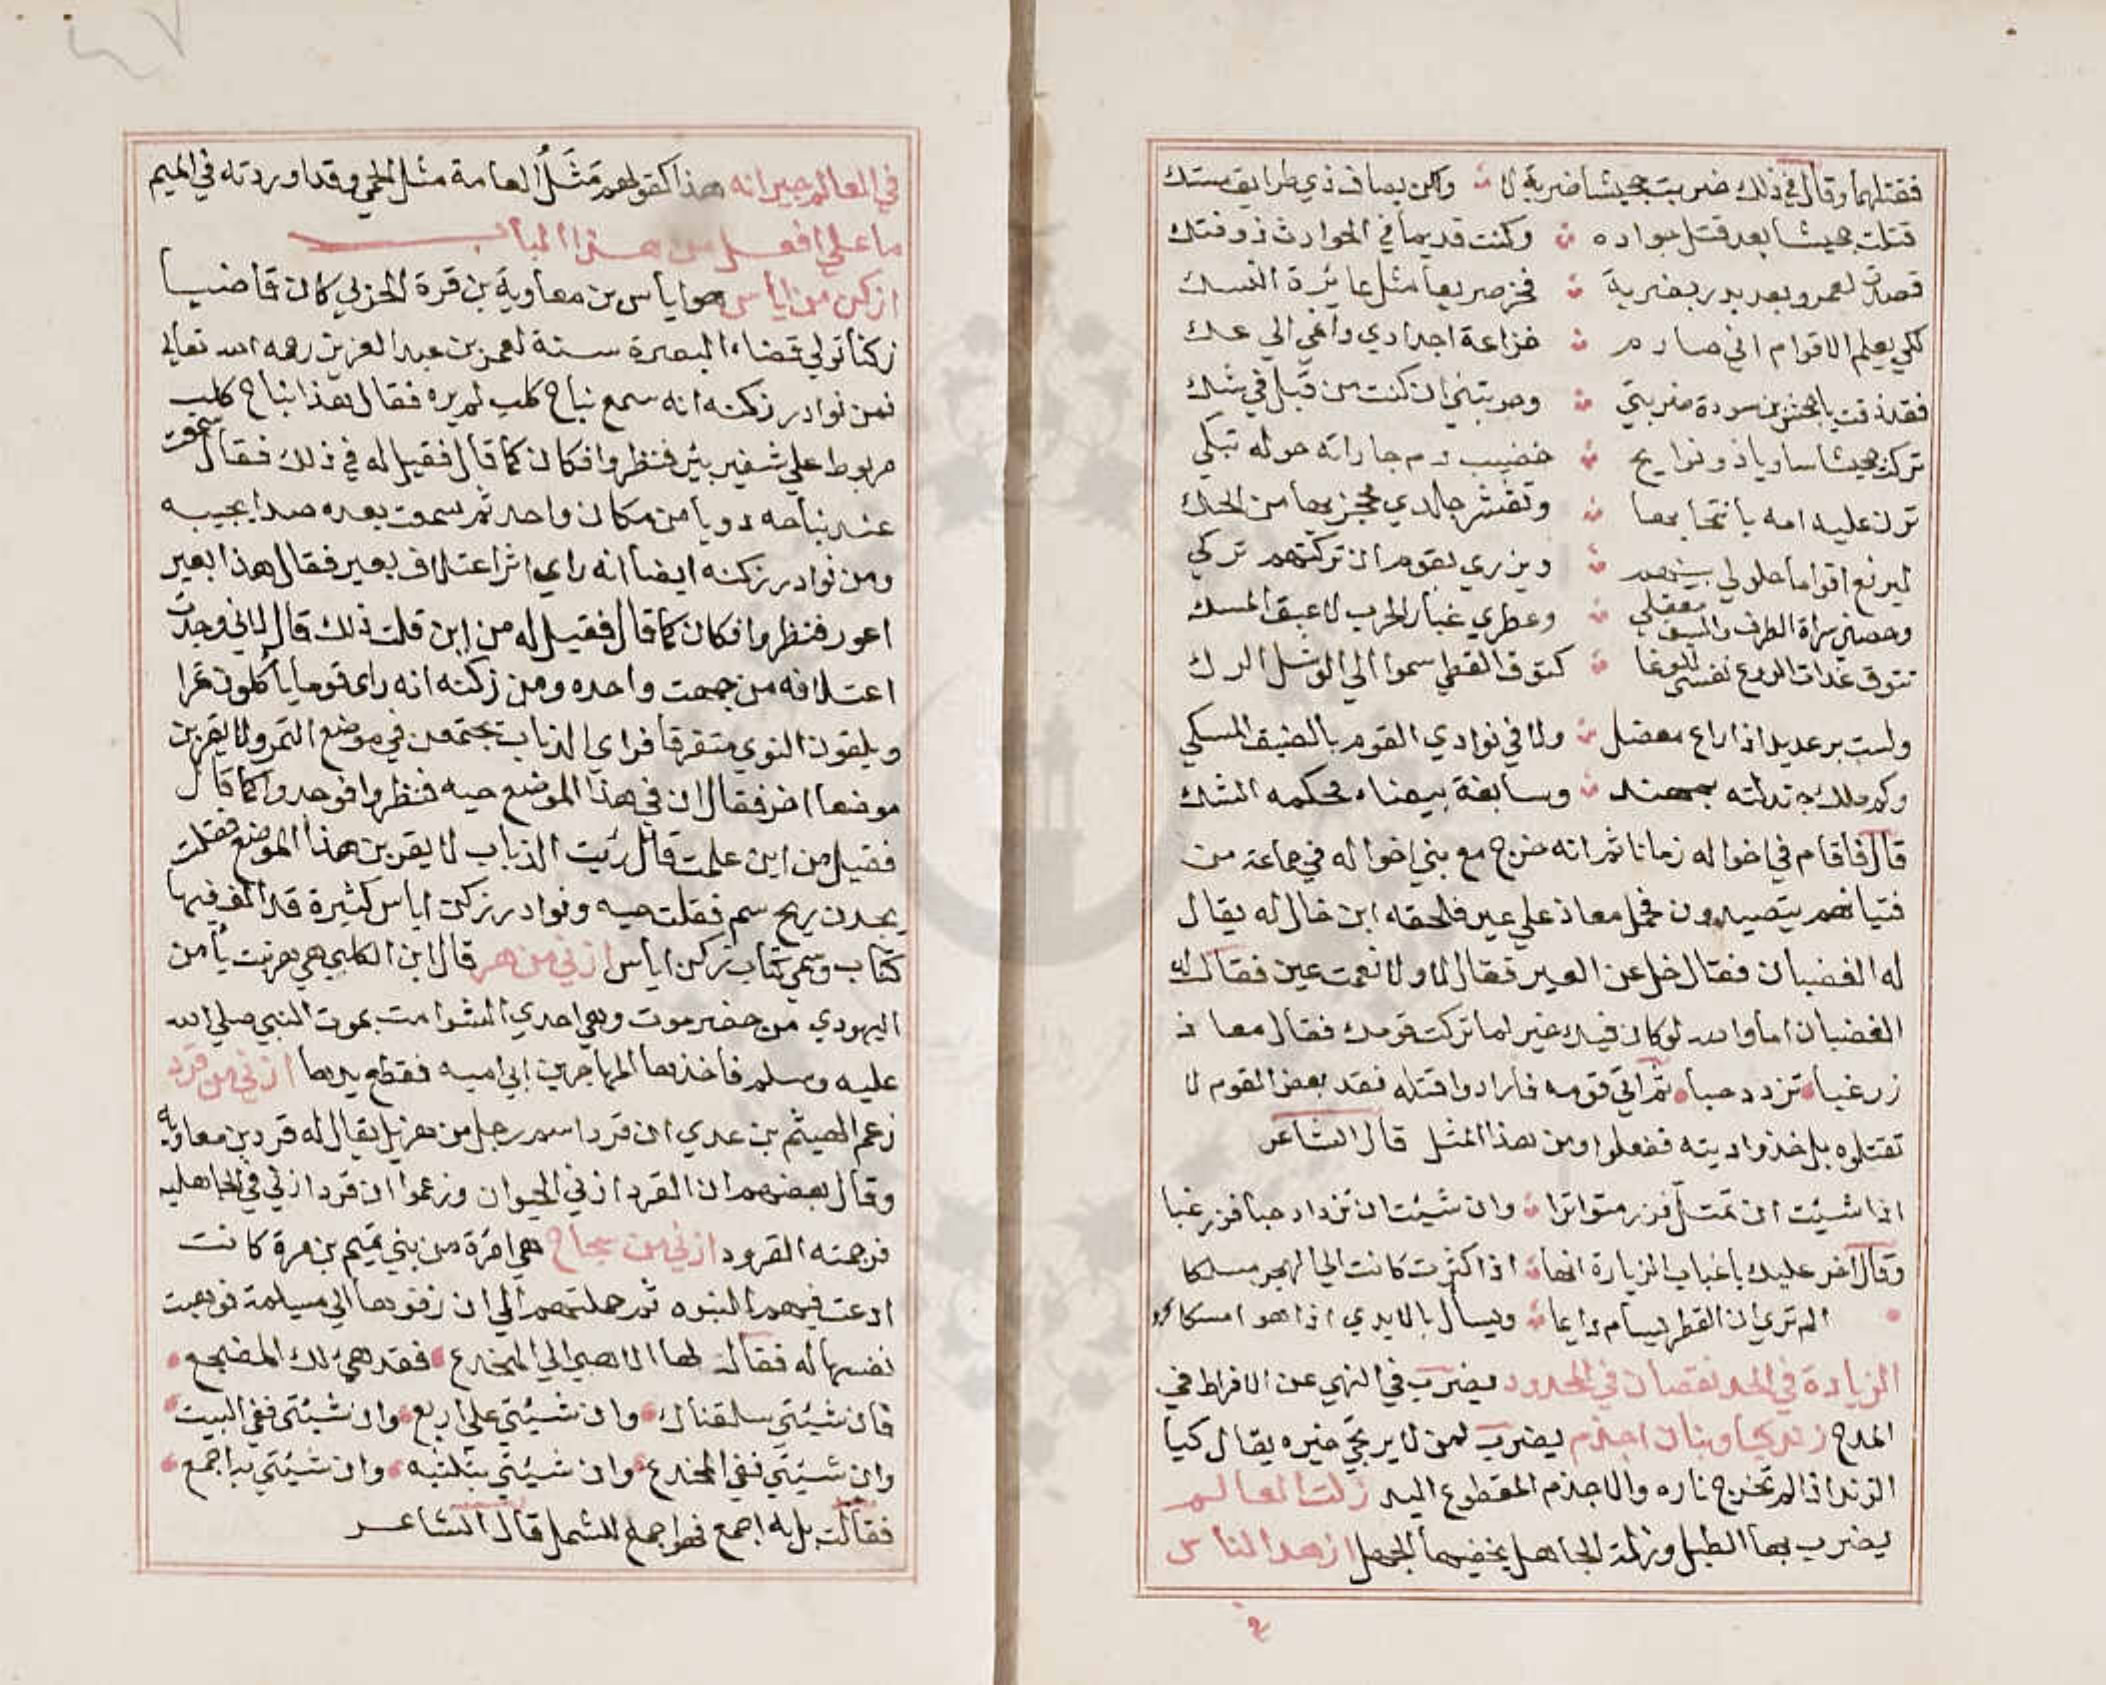 فقتلهما وقال في ذلك ضربت جحيشا ضربة لا ولكن بصاف ذي طرايق مستك
قتلت جحيشا بعد قتل جواده وكنت قديما في الحوادث ذو فتك
قصدت لعمرو بعد بدر بضربة فخر صريعا مثل عايرة النسك
لكي يعلم الاقوام اني صارم خزاعة اجدادي وانمي الي عك
فقد ذقت يا جحش بن سودة ضربتي وجربتني ان كنت من قبل في شك
تركت جحيشا ساويا ذو نوايح خضيب دم جاراته حوله تبكي
ترن عليه امه بانتحابها وتقشر جلدي محجزيها من الحك
ليرفع اقواما حلولي بينهم ويزري بقوم ان تركتهم تركي
وحصني سراة الطرف والسيف معقلي وعطري غبار الحرب لا عبق المسك
تتوق غداة الروع نفسي للوغا كتوق القطي سموا الي الوشل الرك
ولست برعديد اذا راع معضل ولا في نوادي القوم بالضيق المسكي
وكم ملك جدلته بمهند وسابغة بيضاء محكمه الشك
قال فاقام في اخواله زمانا ثم انه خرج مع بني اخواله في جماعة من
فتيانهم يتصيدون فحمل معاذ علي عير فلحقه ابن خال له يقال
له الغضبان فقال خل عن العير فقال لا ولا نعمت عين فقال له
الغضبان اما والله لو كان فيك خير لما تركت قومك فقال معاذ
زر غبا تزدد حبا ثم اتي قومه فارادوا قتله فقد بعض القوم لا
تقتلوه بل خذوا ديته ففعلوا ومن هذا المثل قال الشاعر
اذا شيت ان تمتل فزر متواترا وان شيت ان تزداد حبا فزر غبا
وقال اخر عليك باغباب الزيارة انها اذا كثرت كانت الي الهجر مسلكا
الم تري ان القطر يسام دايما ويسال بالايدي اذا هو امسكا
الزيادة في الحد نقصان في المحدود يضرب في النهي عن الافراط في
المدح زند كبا وبنان اجذم يضرب لمن لا يرتجي خيره يقال كبا
الزند اذا لم تخرج ناره والاجذم المقطوع اليد زلت العالم
يضرب بها الطبل وزلة الجاهل يخفيها الجهل ازهد الناس
في العالم جيرانه هذا كقولهم مثل العامة مثل الحمي وقد اوردته في الميم
ما علي افعل من هذا الباب
ازكن من اياس هو اياس بن معاوية بن قرة المزني كان قاضيا
زكنا تولي قضاء البصرة سنة لعمر بن عبد العزيز رحمه الله تعالي
فمن نوادر زكنه انه سمع نباح كلب لم يره فقال هذا نباح كلب
مربوط علي شفير بير فنظروا فكان كما قال فقيل له في ذلك فقال سمعت
عند نباحه دويا من مكان واحد ثم سمعت بعده صدا يجيبه
ومن نوادر زكنه ايضا انه راي اثر اعتلاف بعير فقال هذا بعير
اعور فنظروا فكان كما قال فقيل له من اين قلت ذلك قال لاني وجدت
اعتلافه من جهت واحده ومن زكنه انه راي قوما ياكلون تمرا
ويلقون النوي متفرقا فراي الذباب يجتمعن في موضع التمر ولا يقربن
موضعا اخر فقال ان في هذا الموضع حيه فنظروا فوجدوا كما قال
فقيل من اين علمت قال رئيت الذباب لا يقربن هذا الموضع فقلت
يجدن ريح سم فقلت حيه ونوادر زكن اياس كثيرة قد الف فيها
كتاب وسمي كتاب زكن اياس ازني من هر قال ابن الكلبي هي هر بنت يامن
اليهودي من حضرموت وهي احدي الشوامت بموت النبي صلي الله
عليه وسلم فاخذها المهاجر بن ابي اميه فقطع يدها ازني من قرد
زعم الهيثم بن عدي ان قردا اسم رجل من هزيل يقال له قرد بن معاويه
وقال بعضهم ان القرد ازني الحيوان وزعموا ان قرد ازني في الجاهليه
فرجمته القرود ازني من سجاح هي امرة من بني تميم بن مرة كانت
ادعت فيهم النبوه ثم حملتهم الي ان زفوها الي مسيلمة فوهبت
نفسها له فقال لها الا هبي الي المخدع فقد هيئ لك المضجع
فان شيتي سلقناك وان شيتي علي اربع وان شيتي ففي البيت
وان شيتي ففي المخدع وان شيتي بثلثيه وان شيتي به اجمع
فقالت بل به اجمع فهو اجمع للشمل قال الشاعر